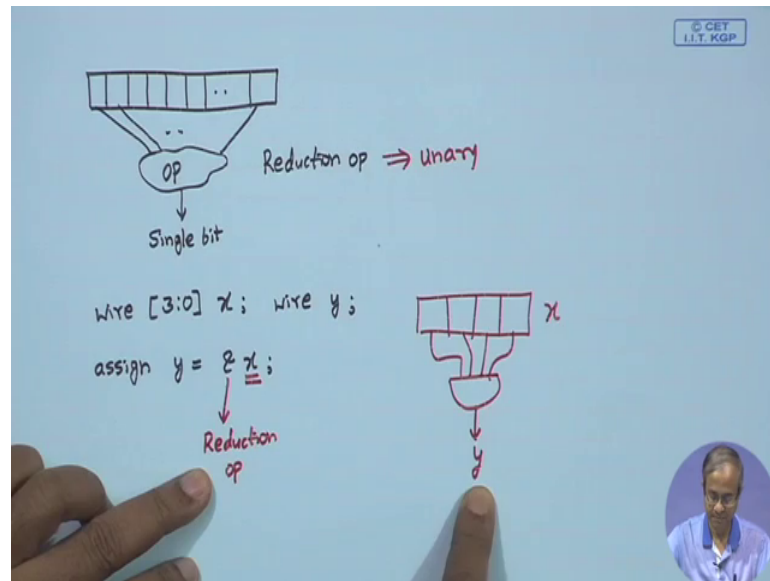 © CET
I.I.T. KGP
..
..
OP
Reduction op ⇒ unary
Single bit
wire [3:0] x; wire y;
x
assign y = & x;
Reduction
op
y